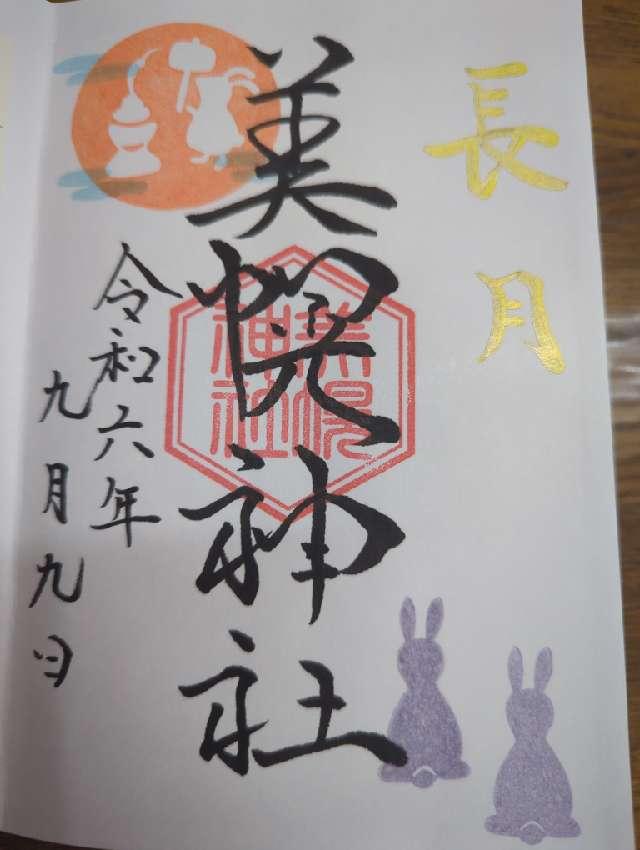 長月
美幌神社
美幌神社
令和六年
九月九日